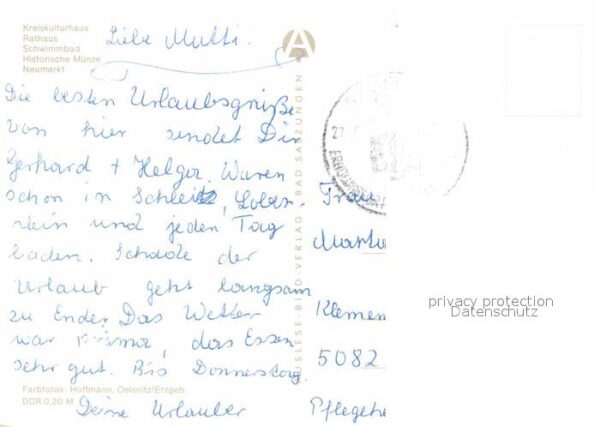 Kreiskulturhaus
Rathaus
Schwimmbad
Historische Münze
Neumarkt
Liebe Mutti.
Die besten Urlaubsgrüße
von hier sendet Dir
Gerhard + Helga. Waren
schon in Schleitz, Loben-
stein und jeden Tag
baden. Schade der
Urlaub geht langsam
zu Ende. Das Wetter
war prima, das Essen
sehr gut. Bis Donnerstag.
Deine Urlauber
Farbfotos: Hoffmann, Oelsnitz/Erzgeb.
DDR 0,20 M
AUSLESE-BILD-VERLAG BAD SALZUNGEN
27.
Frau
Marta
Klemen
5082
Pflegehe
privacy protection
Datenschutz